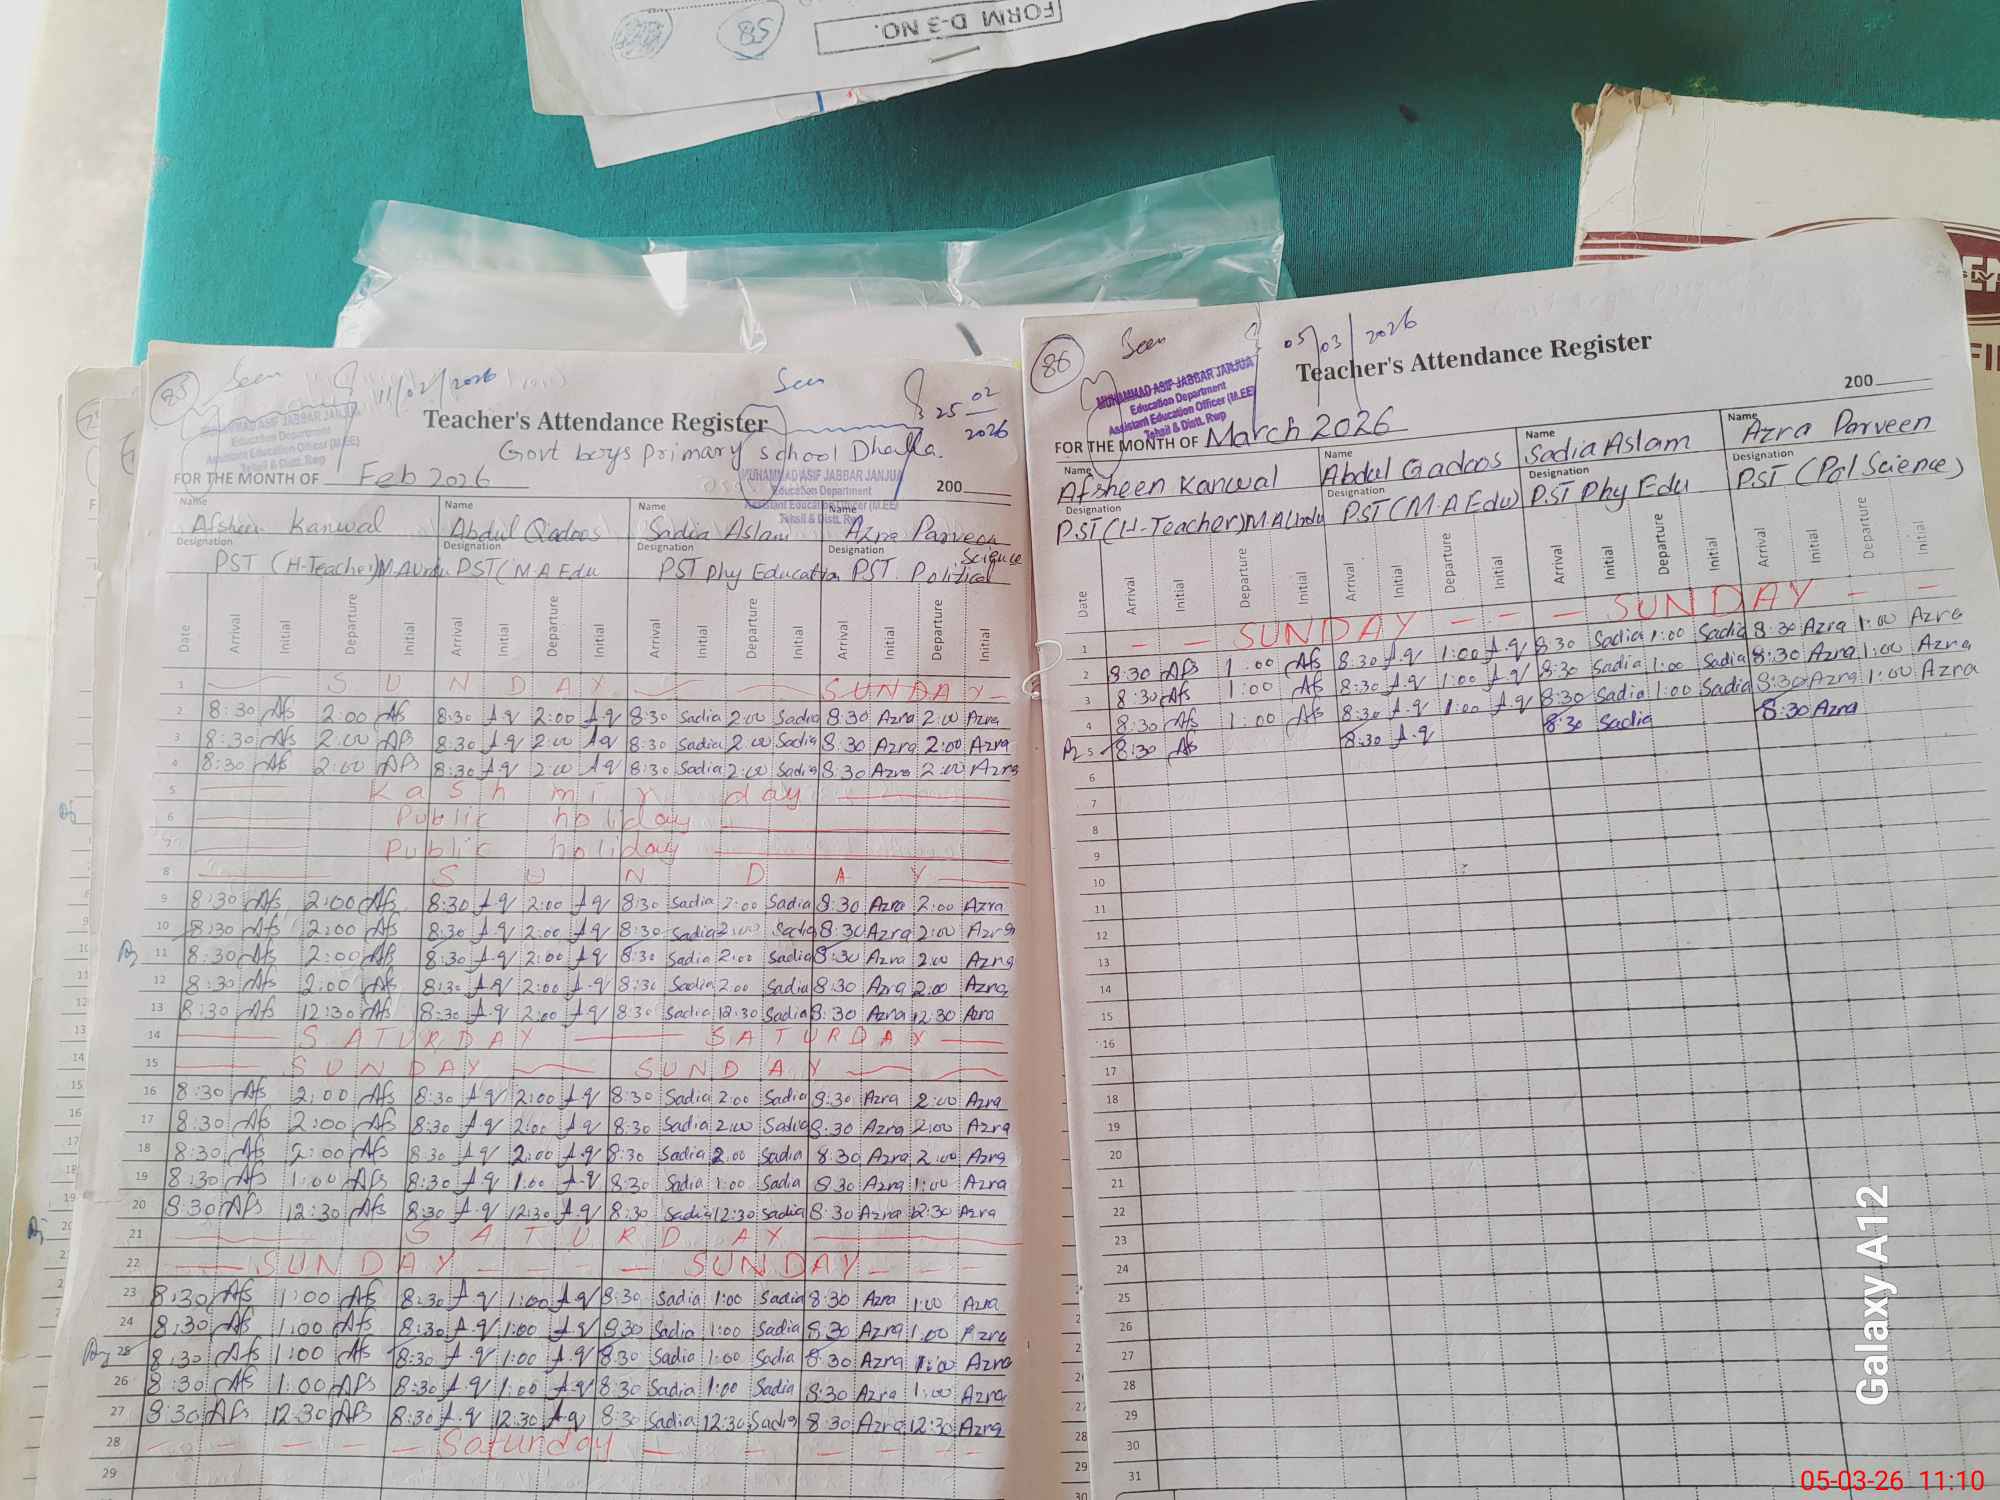 FORM D-3 NO.
85
85
Seen
11/02/2026
Seen
25 02 2026
Teacher's Attendance Register
MUHAMMAD ASIF JABBAR JANJUA
Education Department
Assistant Education Officer (M.EE)
Tehsil & Distt. Rwp
Govt boys primary school Dhalla.
MUHAMMAD ASIF JABBAR JANJUA
Education Department
Assistant Education Officer (M.EE)
Tehsil & Distt. Rwp
FOR THE MONTH OF Feb 2026
200
Name Name Name Name
Afsheen Kanwal Abdul Qadoos Sadia Aslam Azra Parveen
Designation Designation Designation Designation
PST (H-Teacher) M.A Urdu PST (M A Edu PST Phy Education PST. Political Science
Date Arrival Initial Departure Initial Arrival Initial Departure Initial Arrival Initial Departure Initial Arrival Initial Departure Initial
1 SUNDAY SUNDAY
2 8:30 Afs 2:00 Afs 8:30 A.q 2:00 A.q 8:30 Sadia 2:00 Sadia 8:30 Azra 2:00 Azra
3 8:30 Afs 2:00 Afs 8:30 A.q 2:00 A.q 8:30 Sadia 2:00 Sadia 8:30 Azra 2:00 Azra
4 8:30 Afs 2:00 Afs 8:30 A.q 2:00 A.q 8:30 Sadia 2:00 Sadia 8:30 Azra 2:00 Azra
5 Kashmir day
6 Public holiday
7 Public holiday
8 SUNDAY
9 8:30 Afs 2:00 Afs 8:30 A.q 2:00 A.q 8:30 Sadia 2:00 Sadia 8:30 Azra 2:00 Azra
10 8:30 Afs 2:00 Afs 8:30 A.q 2:00 A.q 8:30 Sadia 2:00 Sadia 8:30 Azra 2:00 Azra
11 8:30 Afs 2:00 Afs 8:30 A.q 2:00 A.q 8:30 Sadia 2:00 Sadia 8:30 Azra 2:00 Azra
12 8:30 Afs 2:00 Afs 8:30 A.q 2:00 A.q 8:30 Sadia 2:00 Sadia 8:30 Azra 2:00 Azra
13 8:30 Afs 12:30 Afs 8:30 A.q 2:00 A.q 8:30 Sadia 12:30 Sadia 8:30 Azra 12:30 Azra
14 SATURDAY SATURDAY
15 SUNDAY SUNDAY
16 8:30 Afs 2:00 Afs 8:30 A.q 2:00 A.q 8:30 Sadia 2:00 Sadia 8:30 Azra 2:00 Azra
17 8:30 Afs 2:00 Afs 8:30 A.q 2:00 A.q 8:30 Sadia 2:00 Sadia 8:30 Azra 2:00 Azra
18 8:30 Afs 2:00 Afs 8:30 A.q 2:00 A.q 8:30 Sadia 2:00 Sadia 8:30 Azra 2:00 Azra
19 8:30 Afs 1:00 Afs 8:30 A.q 1:00 A.q 8:30 Sadia 1:00 Sadia 8:30 Azra 1:00 Azra
20 8:30 Afs 12:30 Afs 8:30 A.q 12:30 A.q 8:30 Sadia 12:30 Sadia 8:30 Azra 12:30 Azra
21 SATURDAY
22 SUNDAY SUNDAY
23 8:30 Afs 1:00 Afs 8:30 A.q 1:00 A.q 8:30 Sadia 1:00 Sadia 8:30 Azra 1:00 Azra
24 8:30 Afs 1:00 Afs 8:30 A.q 1:00 A.q 8:30 Sadia 1:00 Sadia 8:30 Azra 1:00 Azra
25 8:30 Afs 1:00 Afs 8:30 A.q 1:00 A.q 8:30 Sadia 1:00 Sadia 8:30 Azra 1:00 Azra
26 8:30 Afs 1:00 Afs 8:30 A.q 1:00 A.q 8:30 Sadia 1:00 Sadia 8:30 Azra 1:00 Azra
27 8:30 Afs 12:30 Afs 8:30 A.q 12:30 A.q 8:30 Sadia 12:30 Sadia 8:30 Azra 12:30 Azra
28 Saturday
29
86
Seen
05/03/2026
Teacher's Attendance Register
MUHAMMAD ASIF JABBAR JANJUA
Education Department
Assistant Education Officer (M.EE)
Tehsil & Distt. Rwp
200
FOR THE MONTH OF March 2026
Name Name Name Name
Afsheen Kanwal Abdul Qadoos Sadia Aslam Azra Parveen
Designation Designation Designation Designation
PST (H-Teacher) M.A Urdu PST (M.A Edu) P.ST Phy Edu PST (Pol Science)
Date Arrival Initial Departure Initial Arrival Initial Departure Initial Arrival Initial Departure Initial Arrival Initial Departure Initial
1 SUNDAY SUNDAY
2 8:30 Afs 1:00 Afs 8:30 A.q 1:00 A.q 8:30 Sadia 1:00 Sadia 8:30 Azra 1:00 Azra
3 8:30 Afs 1:00 Afs 8:30 A.q 1:00 A.q 8:30 Sadia 1:00 Sadia 8:30 Azra 1:00 Azra
4 8:30 Afs 1:00 Afs 8:30 A.q 1:00 A.q 8:30 Sadia 1:00 Sadia 8:30 Azra 1:00 Azra
5 8:30 Afs 8:30 A.q 8:30 Sadia 8:30 Azra
6
7
8
9
10
11
12
13
14
15
16
17
18
19
20
21
22
23
24
25
26
27
28
29
30
31
Galaxy A12
05-03-26 11:10